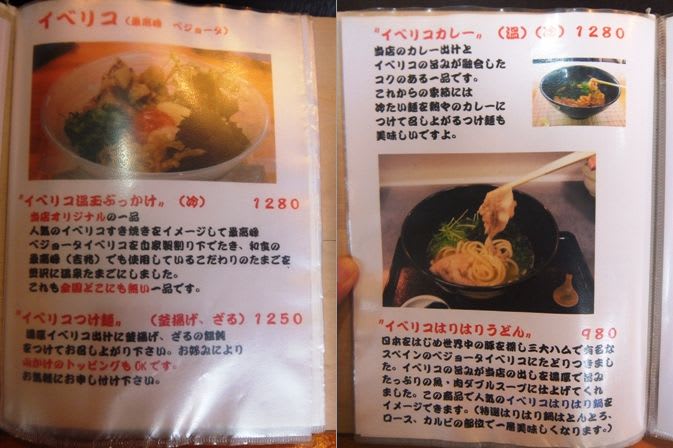 イベリコ（最高峰　ベジョータ）
"イベリコ温玉ぶっかけ"（冷）　1280
当店オリジナルの一品
人気のイベリコすき焼きをイメージして最高峰
ベジョータイベリコを自家製割り下でたき、和食の
最高峰（吉兆）でも使用しているこだわりのたまごを
贅沢に温泉たまごにしました。
これも全国どこにも無い一品です。
"イベリコつけ麺"　（釜揚げ、ざる）1250
濃厚イベリコ出汁に釜揚げ、ざるの饂飩
をつけてお召し上がり下さい。お好みにより
のトッピングもOKです。
お気軽にお申し付け下さい。
"イベリコカレー"　（温）（冷）1280
当店のカレー出汁と
イベリコの旨みが融合した
コクのある一品です。
これからの季節には
冷たい麺を熱々のカレーに
つけて召し上がるつけ麺も
美味しいですよ。
"イベリコはりはりうどん"　980
日本をはじめ世界中の豚を探し三大ハムで有名な
スペインのベジョータイベリコにたどりつきまし
た。イベリコの旨みが当店の出しを濃厚で旨み
たっぷりの魚・肉ダブルスープに仕上げてくれ
ました。この商品で人気のイベリコはりはり鍋を
イメージできます。（特選はりはり鍋はとんとろ、
ロース、カルビの部位で一層美味しくなります。）